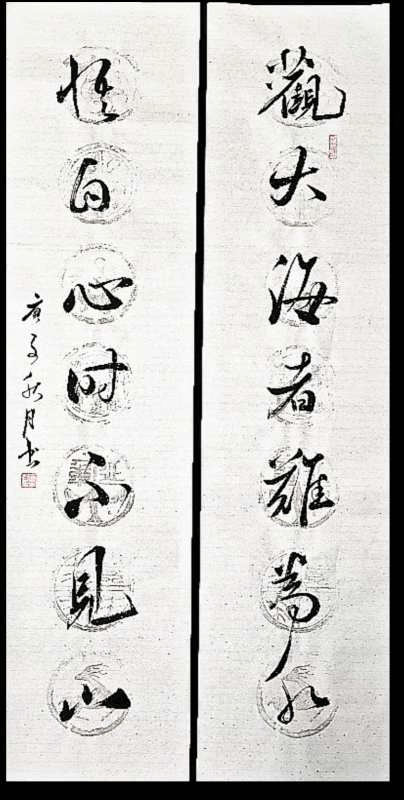 觀大海者難為水
悟自心时不見山
庚子秋月书